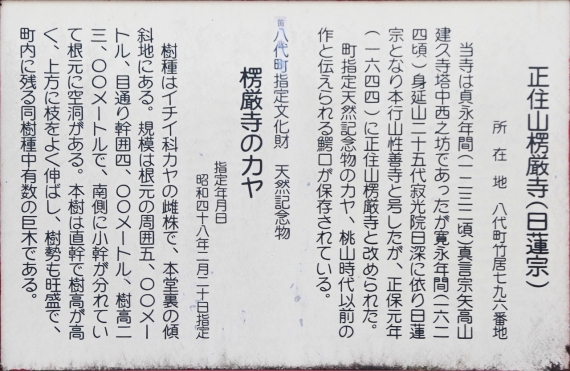 正住山楞厳寺(日蓮宗)
所在地 八代町竹居七九六番地
当寺は貞永年間(一二三二頃)真言宗矢高山
建久寺塔中西之坊であったが寛永年間(一六二
四頃)身延山二十五代寂光院日深に依り日蓮
宗となり本行山性善寺と号したが、正保元年
(一六四四)に正住山楞厳寺と改められた。
町指定天然記念物のカヤ、桃山時代以前の
作と伝えられる鰐口が保存されている。
八代町指定文化財 天然記念物
楞厳寺のカヤ
指定年月日
昭和四十八年二月二十日指定
樹種はイチイ科カヤの雌株で、本堂裏の傾
斜地にある。規模は根元の周囲五、〇〇メー
トル、目通り幹囲四、〇〇メートル、樹高二
三、〇〇メートルで、南側に小幹が分れてい
て根元に空洞がある。本樹は直幹で樹高が高
く、上方に枝をよく伸ばし、樹勢も旺盛で、
町内に残る同樹種中有数の巨木である。